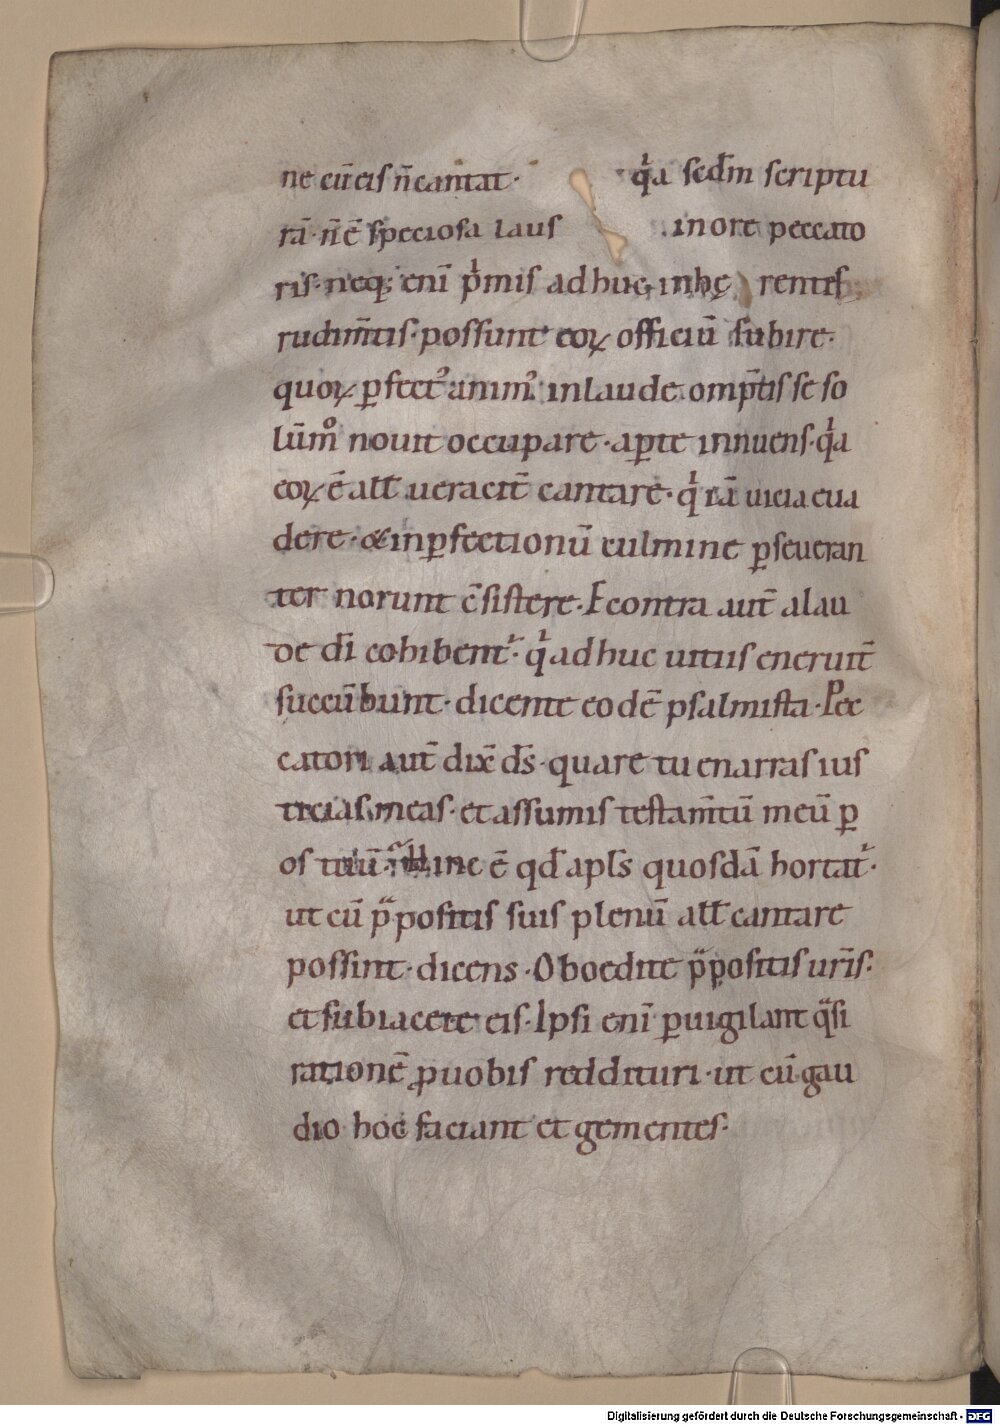 ne cū eis n̄ cantat· qͥa scdm̄ scriptu
rā· n̄ ē speciosa laus in ore peccato
ris· neq; eni ̄ pͥmis adhuc inhę rentes
rudim̄tis· possunt eoꝝ officiū subire·
quoꝝ ꝑfect᾿ anim᾿ in laude omp̄tis se so
lūmͦ nouit occupare· aꝑte innuens· qͥa
eoꝝ ē all̄ ueracit̄ cantare· qͥ iā uicia eua
dere· & in ꝑfectionū culmine ꝑseueran
ter norunt c̄sistere· Econtra aut̄ a lau
de dī cohibent᷑· qͥ adhuc uitiis eneruit̄
succūbunt· dicente eodē psalmista· Pec
catori aut̄ dix̄ d̄s· quare tu enarras ius
ticias meas· et assumis testam̄tū meū ꝑ
os tuū· hinc ē qd̄ apl̄s quosdā hortat᷑·
ut cū p̈positis suis plenū all̄ cantare
possint· dicens· Oboedite p̈positis ur̄is·
et subiacete eis· Ipsi enī ꝑuigilant qͣsi
rationē ꝓ uobis reddituri· ut cū gau
dio hoc faciant et gementes·
Digitalisierung gefördert durch die Deutsche Forschungsgemeinschaft - DFG